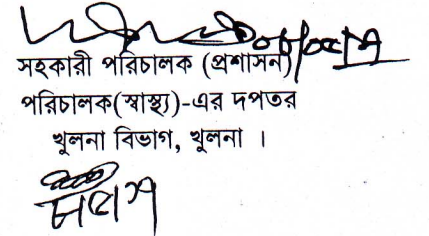 সহকারী পরিচালক (প্রশাসন)
পরিচালক(স্বাস্থ্য)-এর দপতর
খুলনা বিভাগ, খুলনা ।